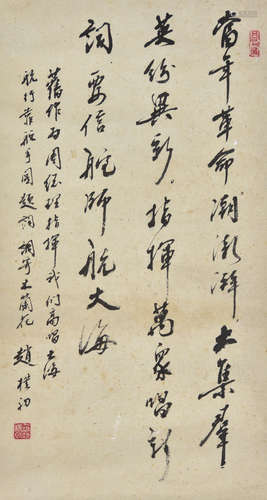 當年革命潮澎湃 大集群
英份異彩 指揮萬眾唱新
詞 要信舵師航大海
舊作为周总理指揮我们高唱大海
航行靠舵手周題詞 調寄木蘭花
趙樸初